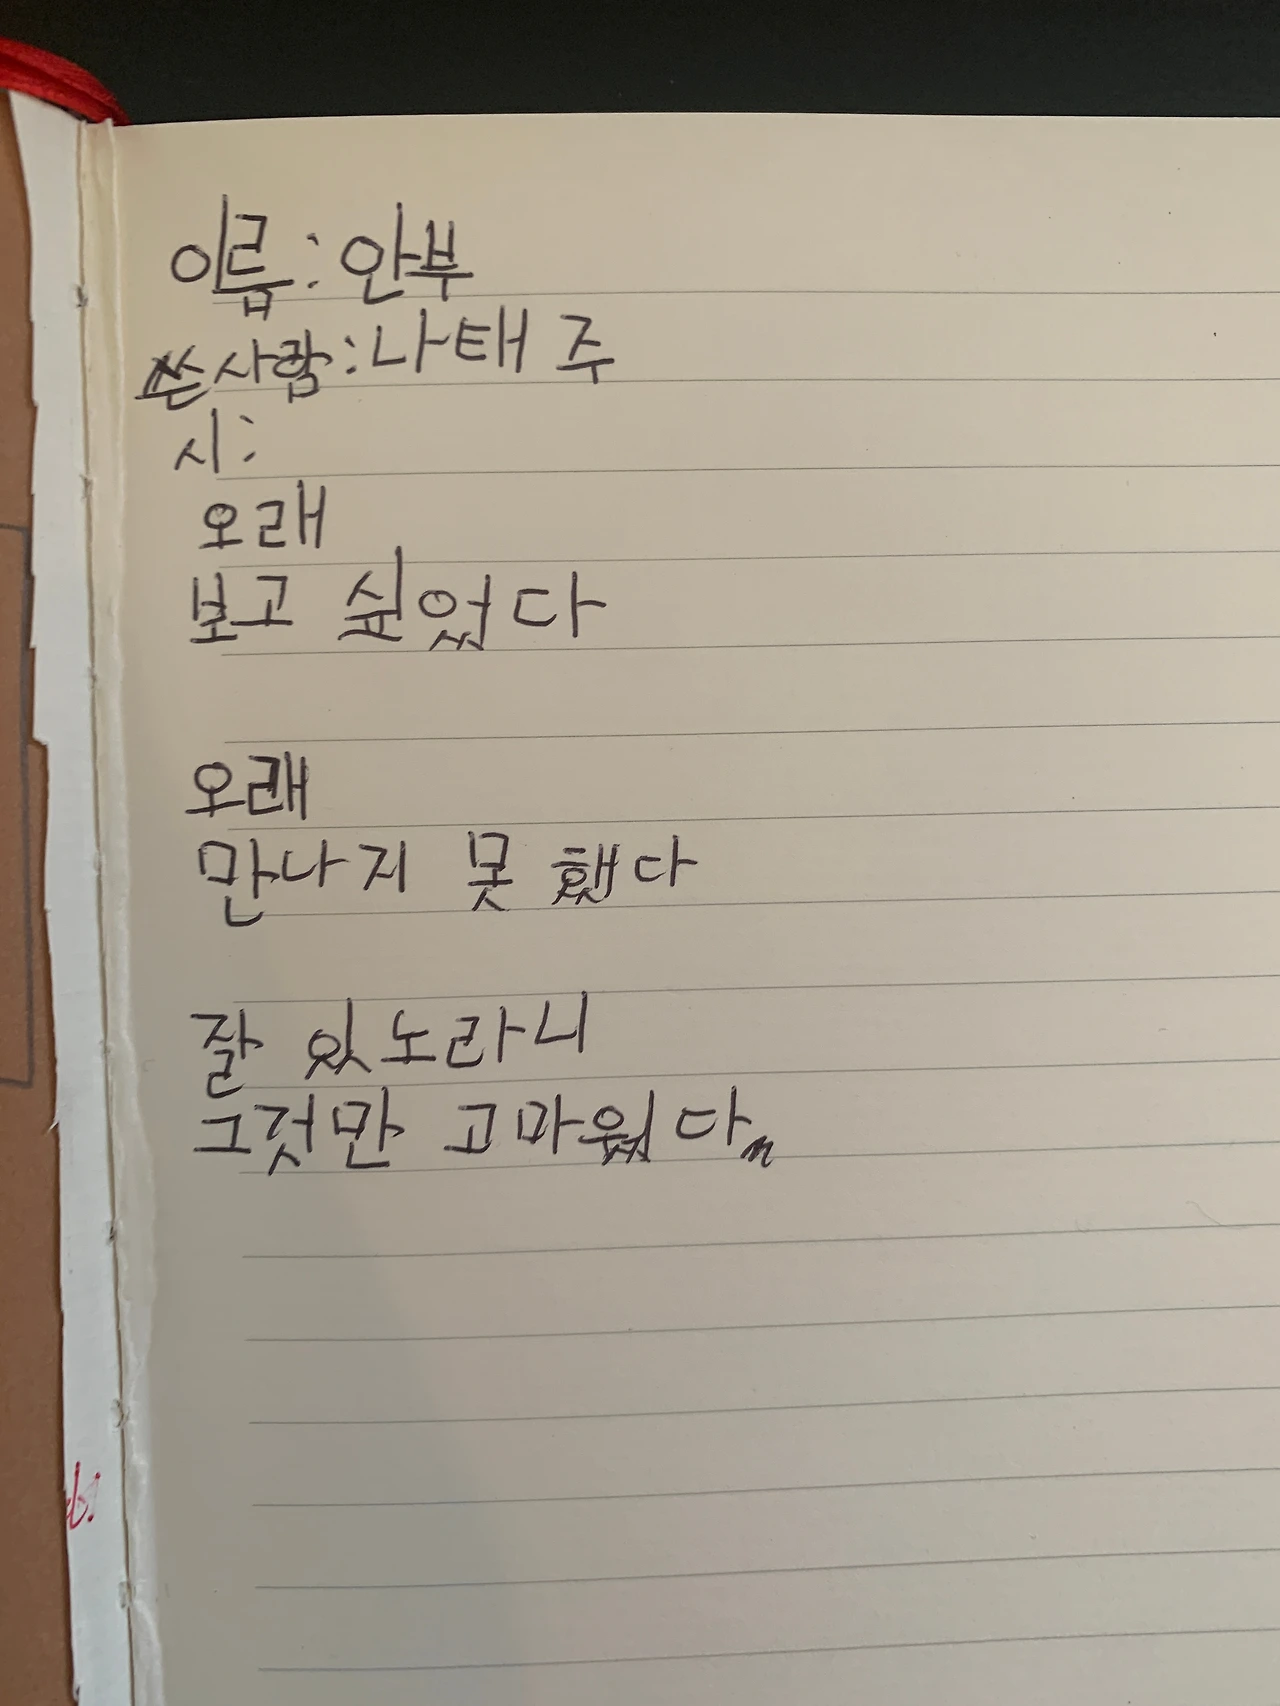 이름: 안부
쓴사람: 나태주
시:
오래
보고 싶었다
오래
만나지 못 했다
잘 있노라니
그것만 고마웠다